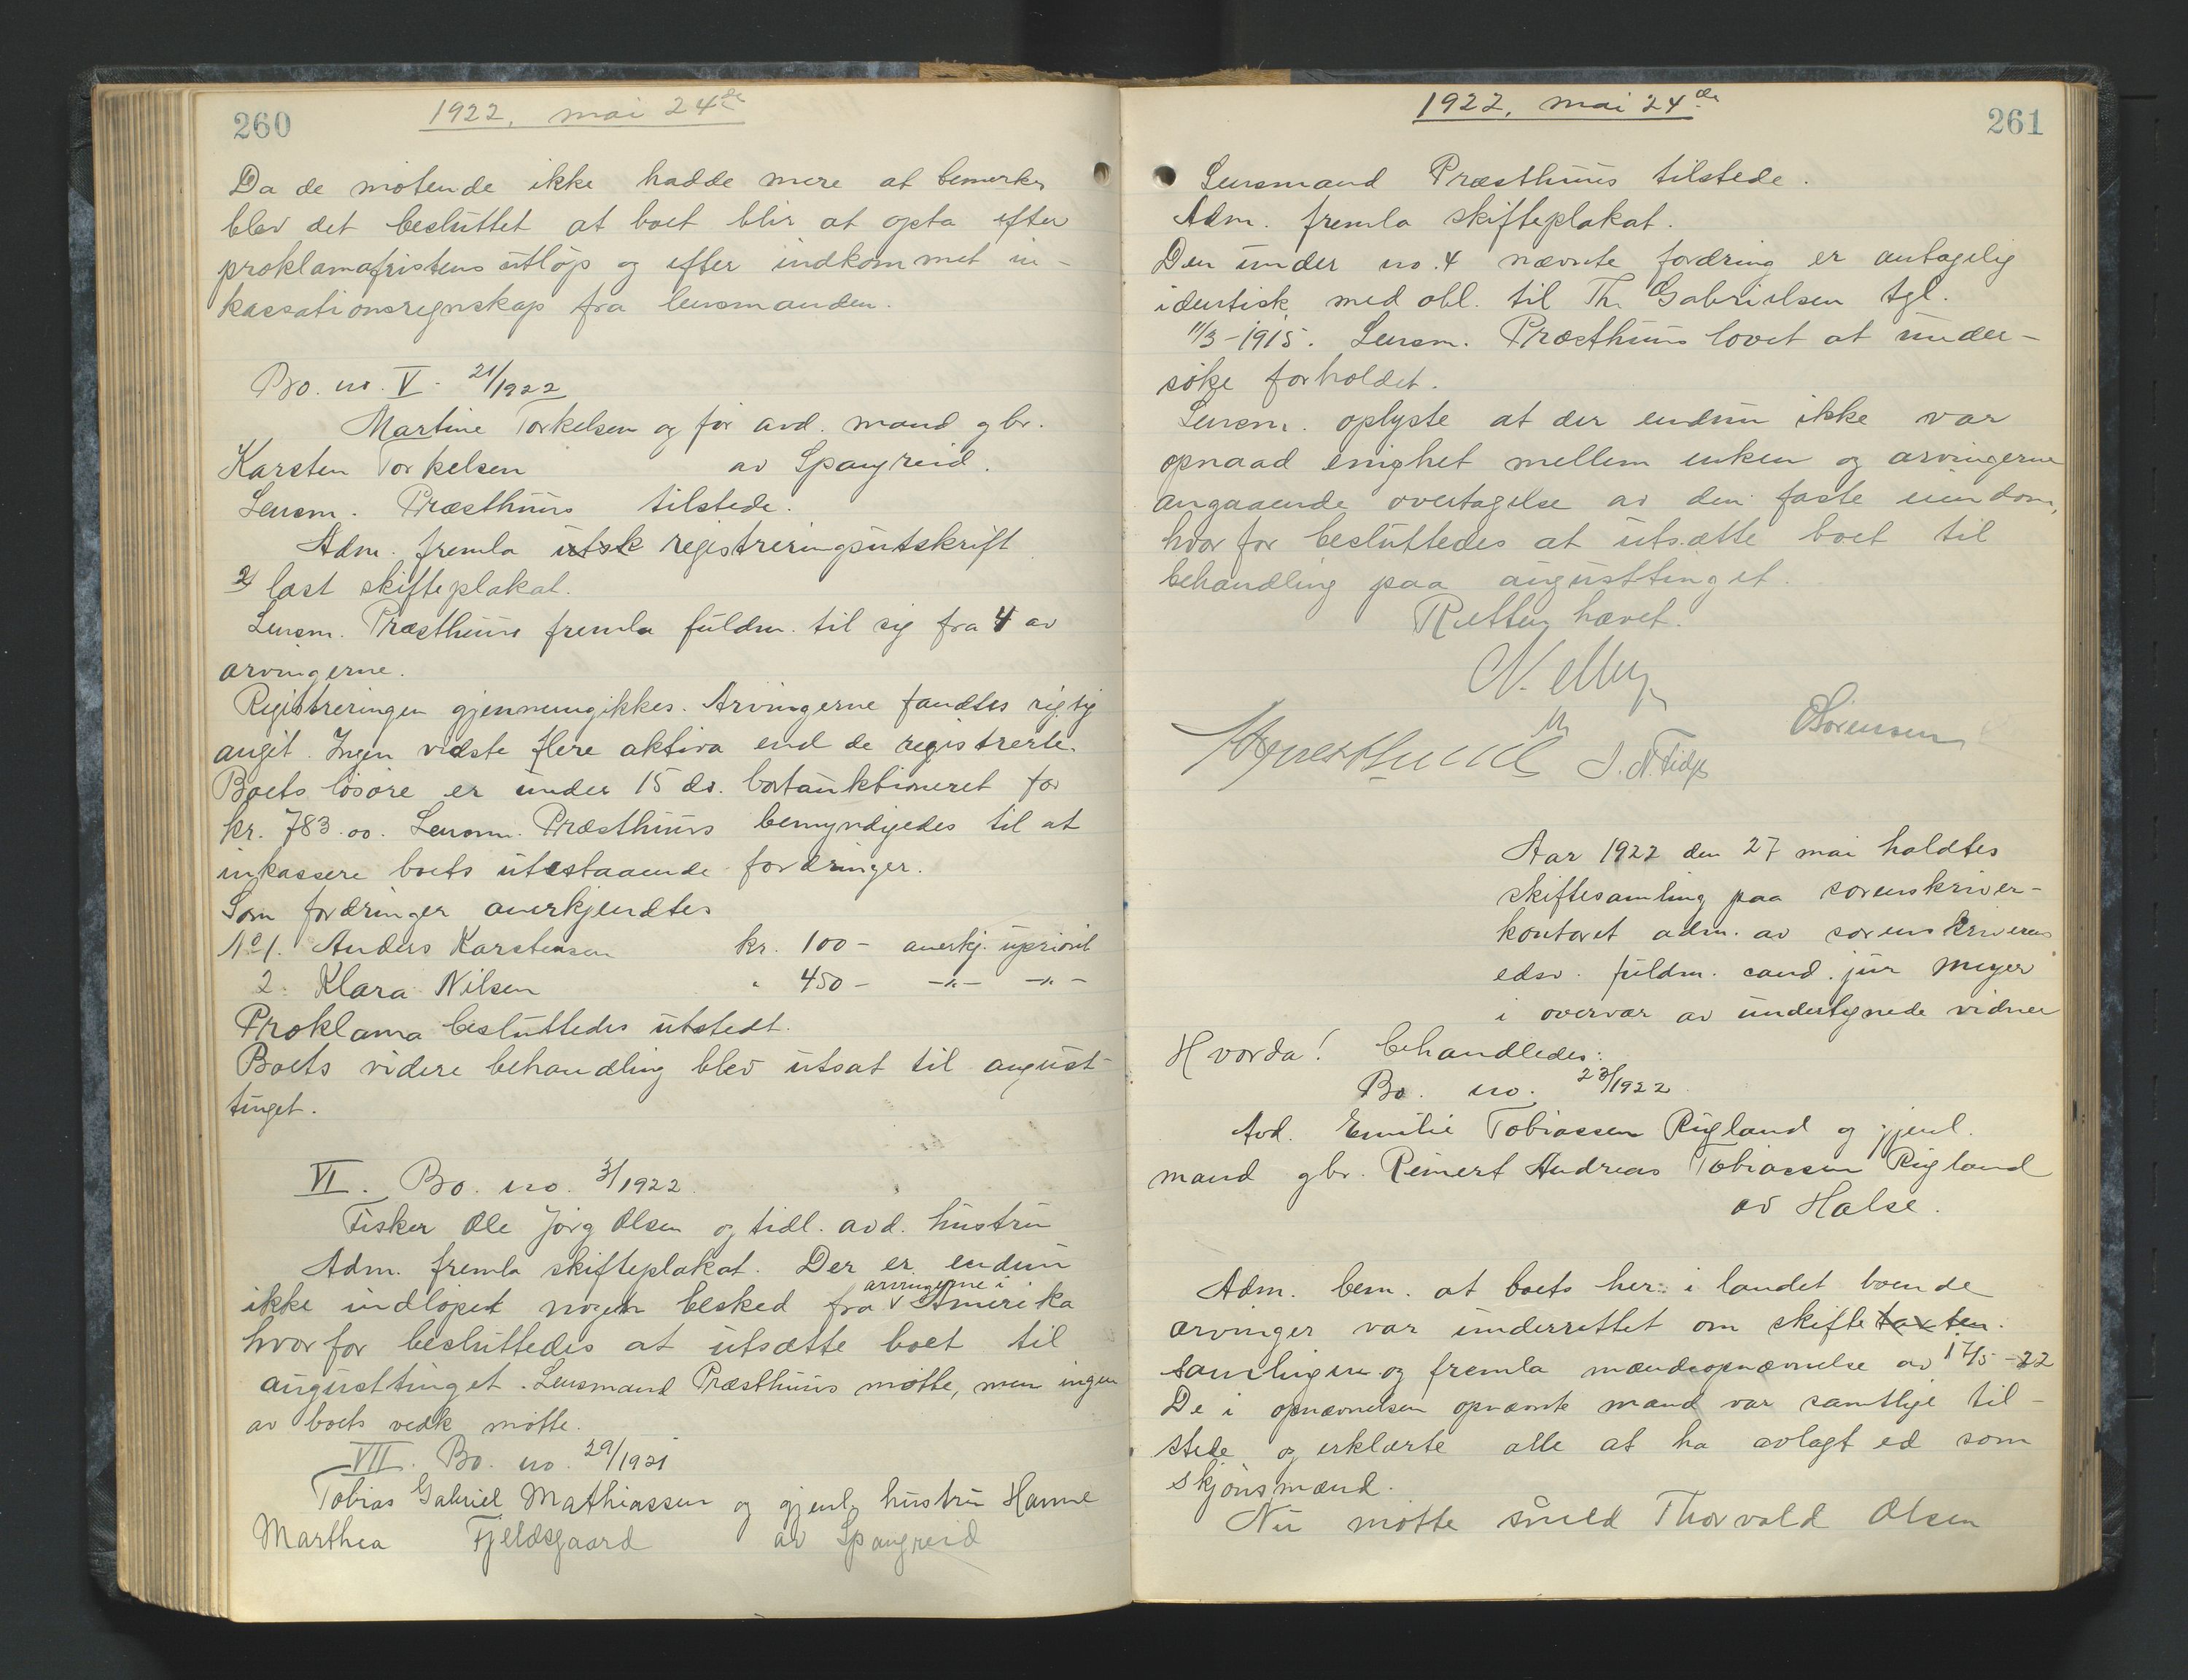 260
1922, mai 24de
Da de møtende ikke hadde mere at bemerke
blev det besluttet at boet blir at opta efter
proklamafristens utløp og efter indkommet in-
kassationsregnskap fra lensmanden.
Bo. no. V. 21/1922
Martine Torkelsen og før avd. mand gbr.
Karsten Torkelsen av Spangreid.
Lensm. Præsthuus tilstede.
Adm. fremla utsk registreringsutskrift
og læst skifteplakat.
Lensm. Præsthuus fremla fuldm. til sig fra 4 av
arvingerne.
Registreringen gjennemgikkes. Arvingerne fandtes rigtig
angit. Ingen vidste flere aktiva end de registrerte.
Boets løsøre er under 15 ds. bortauktioneret for
kr. 783.00. Lensm. Præsthuus bemyndigedes til at
inkassere boets utestaaende fordringer.
Som fordringer anerkjendtes
No 1. Anders Karstensen kr. 100 - anerkj. upriorit
2. Klara Nilsen " 450 - -"- -"-
Proklama besluttedes utstedt.
Boets videre behandling blev utsat til august-
tinget.
VI. Bo. no. 3/1922.
Fisker Ole Jørg Olsen og tidl. avd. hustru
Adm. fremla skifteplakat. Der er endnu
ikke indløpet nogen besked fra arvingerne i Amerika
hvorfor besluttedes at utsætte boet til
augusttinget. Lensmand Præsthuus møtte, men ingen
av boets vedk møtte.
VII. Bo. no. 29/1921
Tobias Gabriel Mathiassen og gjenl. hustru Hanne
Marthea Fjeldsgaard av Spangreid
1922, mai 24de
261
Lensmand Præsthuus tilstede.
Adm. fremla skifteplakat.
Den under no. 4 nævnte fordring er antagelig
identisk med obl. til Th. Gabrielsen tgl.
11/3-1915. Lensm. Præsthuus lovet at under-
søke forholdet.
Lensm. oplyste at der endnu ikke var
opnaad enighet mellem enken og arvingerne
angaaende overtagelse av den faste eiendom,
hvorfor besluttedes at utsætte boet til
behandling paa augusttinget.
Retten hævet.
N. Meyer
O Sørensen
Aar 1922 den 27 mai holdtes
skiftesamling paa sorenskriver-
kontoret adm. av sorenskriverens
edsv. fuldm. cand. jur Meyer
i overvær av undertegnede vidner
Hvorda! behandledes:
Bo. no. 23/1922
Avd. Emilie Tobiassen Rigland og gjenl.
mand gbr. Reinert Andreas Tobiassen Rigland
av Halse.
Adm. bem. at boets her i landet boende
arvinger var underrettet om skifte taxten.
samlingen og fremla mændsopnævnelse av 17/5-22
De i opnævnelsen opnævnte mænd var samtlige til-
stede og erklærte alle at ha avlagt ed som
skjønsmænd.
Nu møtte Thorvald Olsen